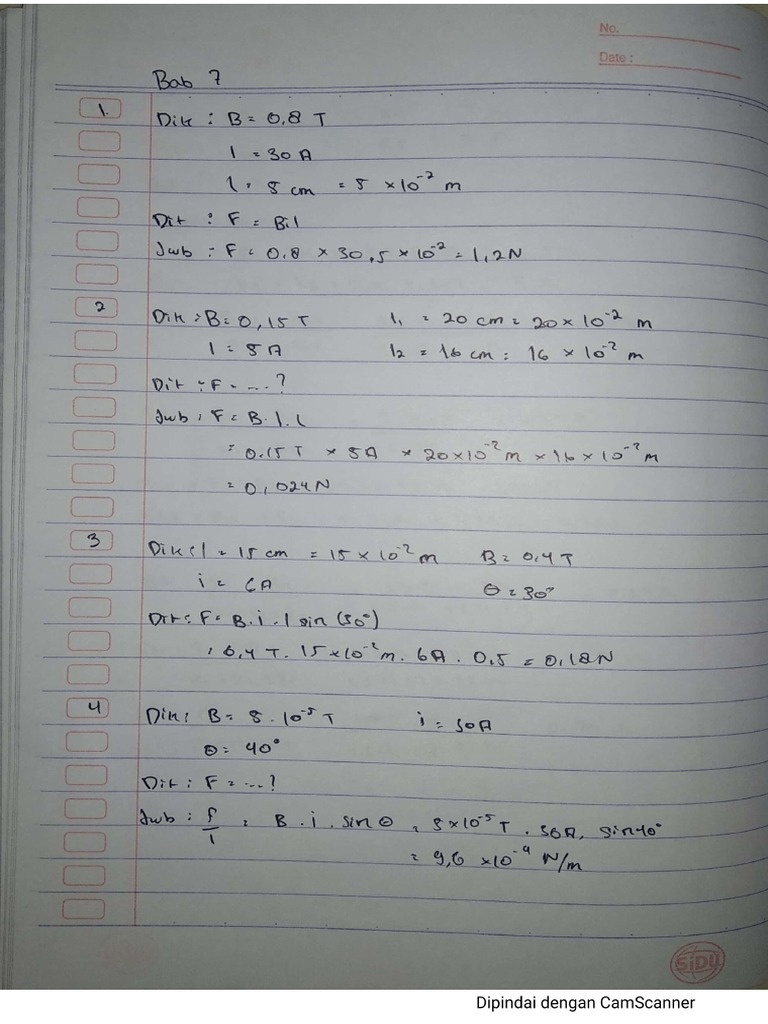 No.
Date :
Bab 7
1. Dik : B = 0,8 T
I = 30 A
l = 5 cm = 5 × 10⁻² m
Dit : F = B i l
Jwb : F = 0.8 × 30 . 5 × 10⁻² = 1,2 N
2 Dik : B = 0,15 T l₁ = 20 cm = 20 × 10⁻² m
I = 5 A l₂ = 16 cm = 16 × 10⁻² m
Dit : F = ... ?
Jwb : F = B . I . l
= 0.15 T × 5A × 20×10⁻² m × 16 × 10⁻² m
= 0,024 N
3 Dik : l = 15 cm = 15 × 10⁻² m B = 0,4 T
i = 6A θ = 30°
Dit : F = B . i . l sin (30°)
= 0,4 T . 15×10⁻² m . 6A . 0,5 = 0,18 N
4 Dik : B = 5 . 10⁻⁵ T i = 30A
θ = 40°
Dit : F = ... ?
Jwb : F/l = B . i . sin θ = 5×10⁻⁵ T . 30A . sin 40°
= 9,6 × 10⁻⁴ N/m
SiDU
Dipindai dengan CamScanner